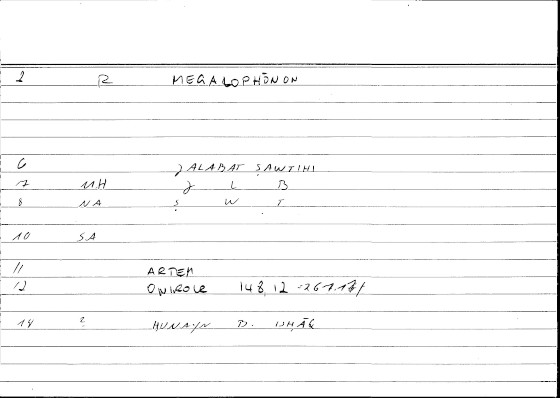 1 R MEGALOPHŌNON
6 ǦALABAT ṢAWTIHI
7 MH Ǧ L B
8 NA Ṣ W T
10 SA
11 ARTEM
12 ONIROCR 148,12
14 2 ḤUNAYN B. ISḤĀQ